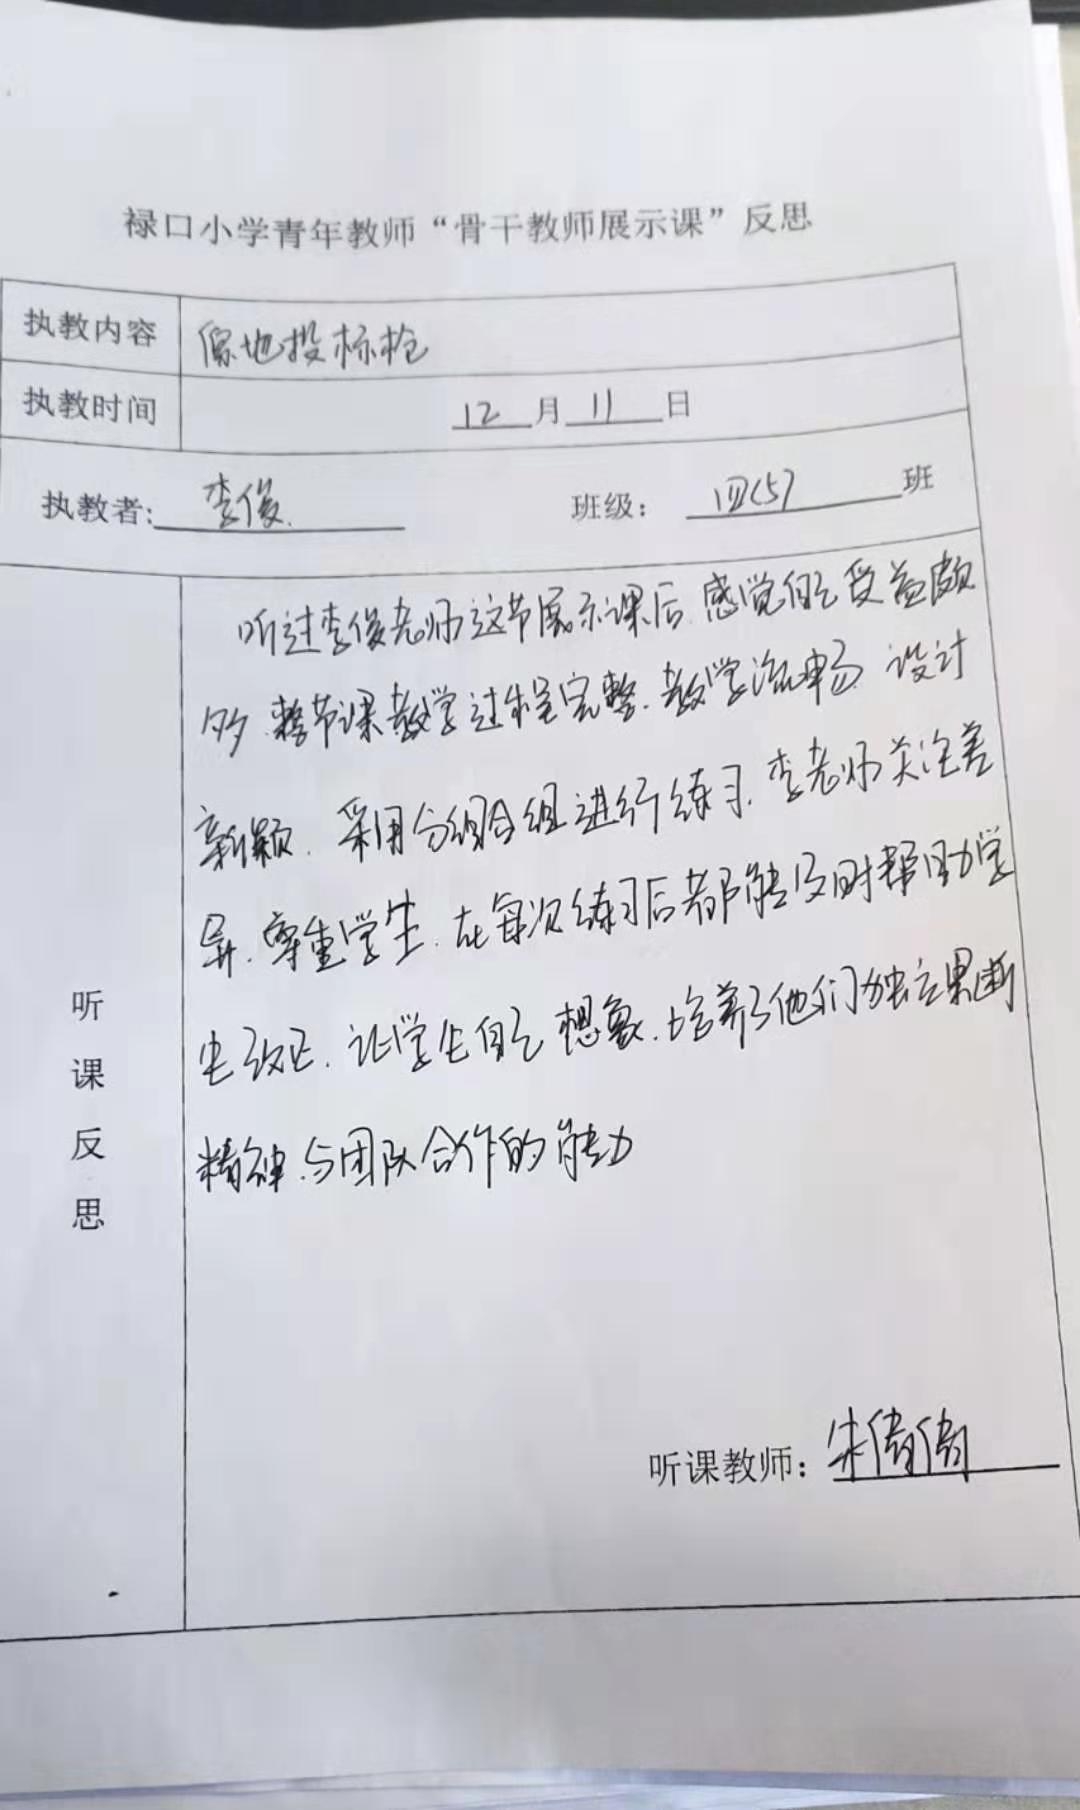 禄口小学青年教师“骨干教师展示课”反思
执教内容 原地投标枪
执教时间 12月11日
执教者: 李俊 班级: 四(5)班
听课反思
听过李俊老师这节展示课后,感觉自己受益颇
多.整节课教学过程完整.教学流畅.设计
新颖.采用分组合组进行练习.李老师关注差
异.尊重学生.在每次练习后都能及时帮助学
生改正.让学生自己想象.培养了他们独立果断
精神.与团队合作的能力
听课教师: 朱倩倩